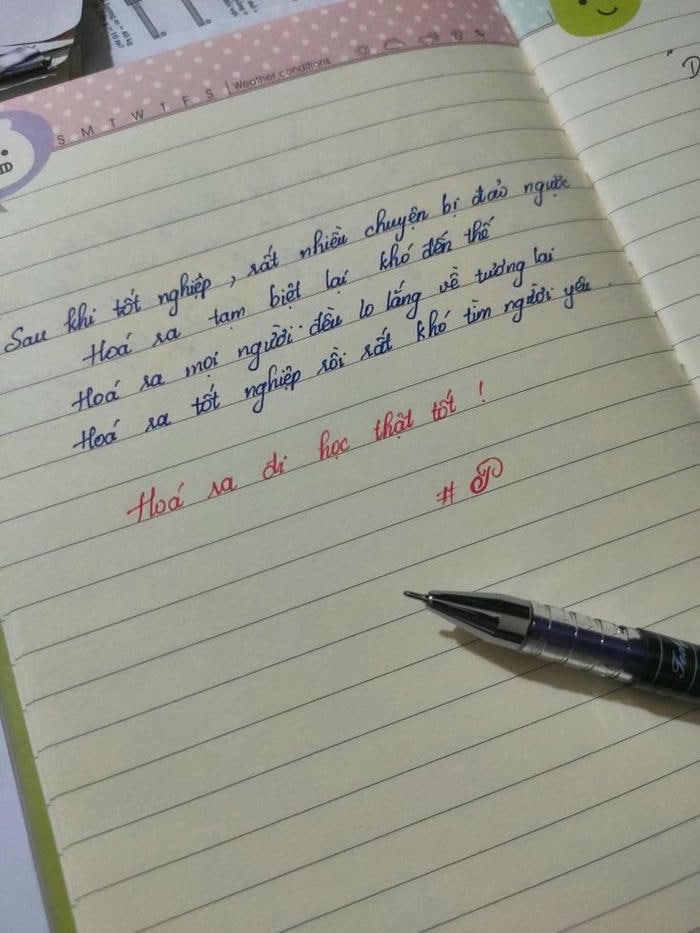 S M T W T F S | Weather conditions
Sau khi tốt nghiệp, rất nhiều chuyện bị đảo ngược
Hoá ra tạm biệt lại khó đến thế
Hoá ra mọi người đều lo lắng về tương lai
Hoá ra tốt nghiệp rồi rất khó tìm người yêu.
Hoá ra đi học thật tốt!